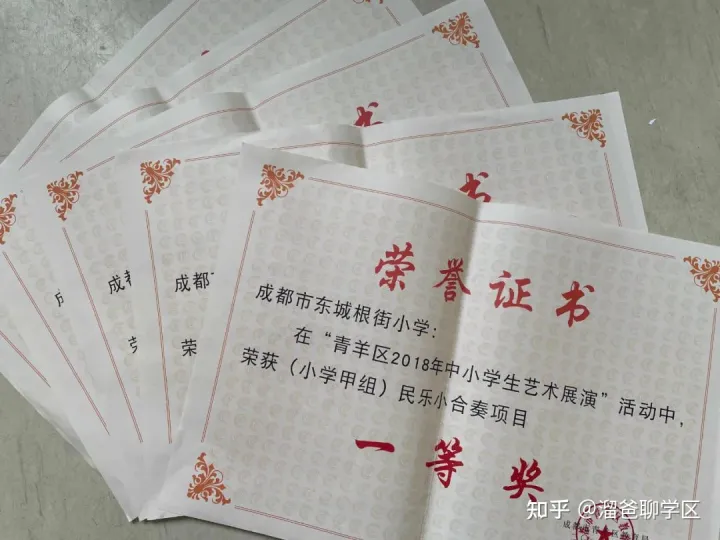 书
书
荣誉证书
成都市东城根街小学：
在“青羊区2018年中小学生艺术展演”活动中，
荣获（小学甲组）民乐小合奏项目
一等奖
成都
荣
成都
荣
知乎 @溜爸聊学区